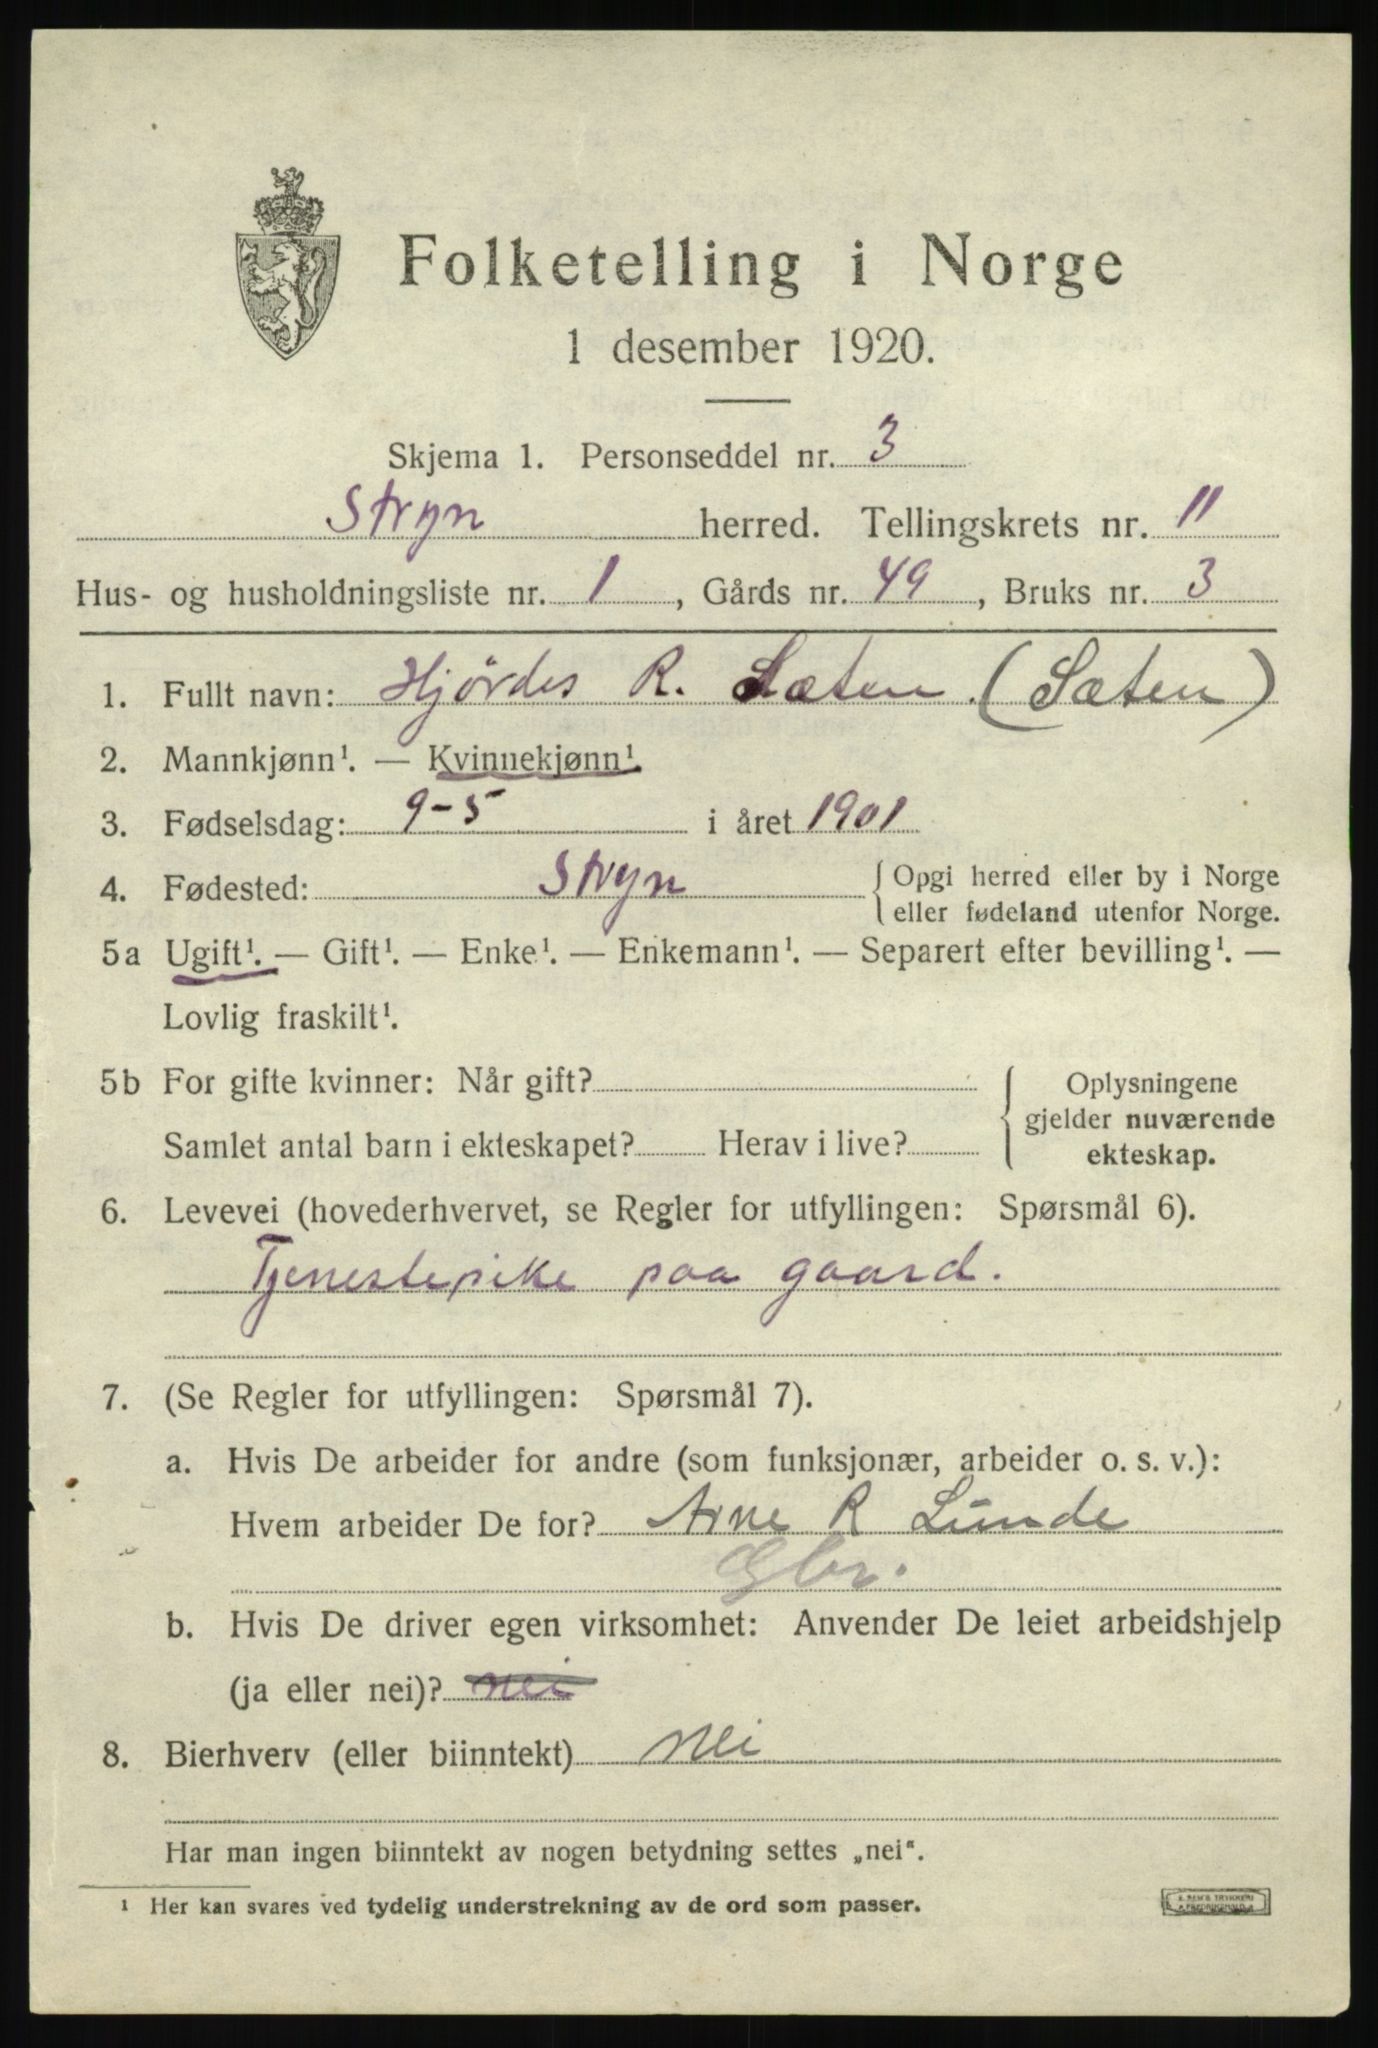 Folketelling i Norge
1 desember 1920.
Skjema 1. Personseddel nr. 3
Stryn herred. Tellingskrets nr. 11
Hus- og husholdningsliste nr. 1, Gårds nr. 49, Bruks nr. 3
1. Fullt navn: Hjördis R. Sæten (Sæten)
2. Mannkjønn¹. — Kvinnekjønn¹.
3. Fødselsdag: 9-5 i året 1901
4. Fødested: Stryn
Opgi herred eller by i Norge
eller fødeland utenfor Norge.
5a Ugift¹. — Gift¹. — Enke¹. — Enkemann¹. — Separert efter bevilling¹. —
Lovlig fraskilt¹.
5b For gifte kvinner: Når gift?
Samlet antal barn i ekteskapet? Herav i live?
Oplysningene
gjelder nuværende
ekteskap.
6. Levevei (hovederhvervet, se Regler for utfyllingen: Spørsmål 6).
Tjenestepike paa gaard.
7. (Se Regler for utfyllingen: Spørsmål 7).
a. Hvis De arbeider for andre (som funksjonær, arbeider o. s. v.):
Hvem arbeider De for? Arne R Lunde
Gbr.
b. Hvis De driver egen virksomhet: Anvender De leiet arbeidshjelp
(ja eller nei)? nei
8. Bierhverv (eller biinntekt) nei
Har man ingen biinntekt av nogen betydning settes „nei".
¹ Her kan svares ved tydelig understrekning av de ord som passer.